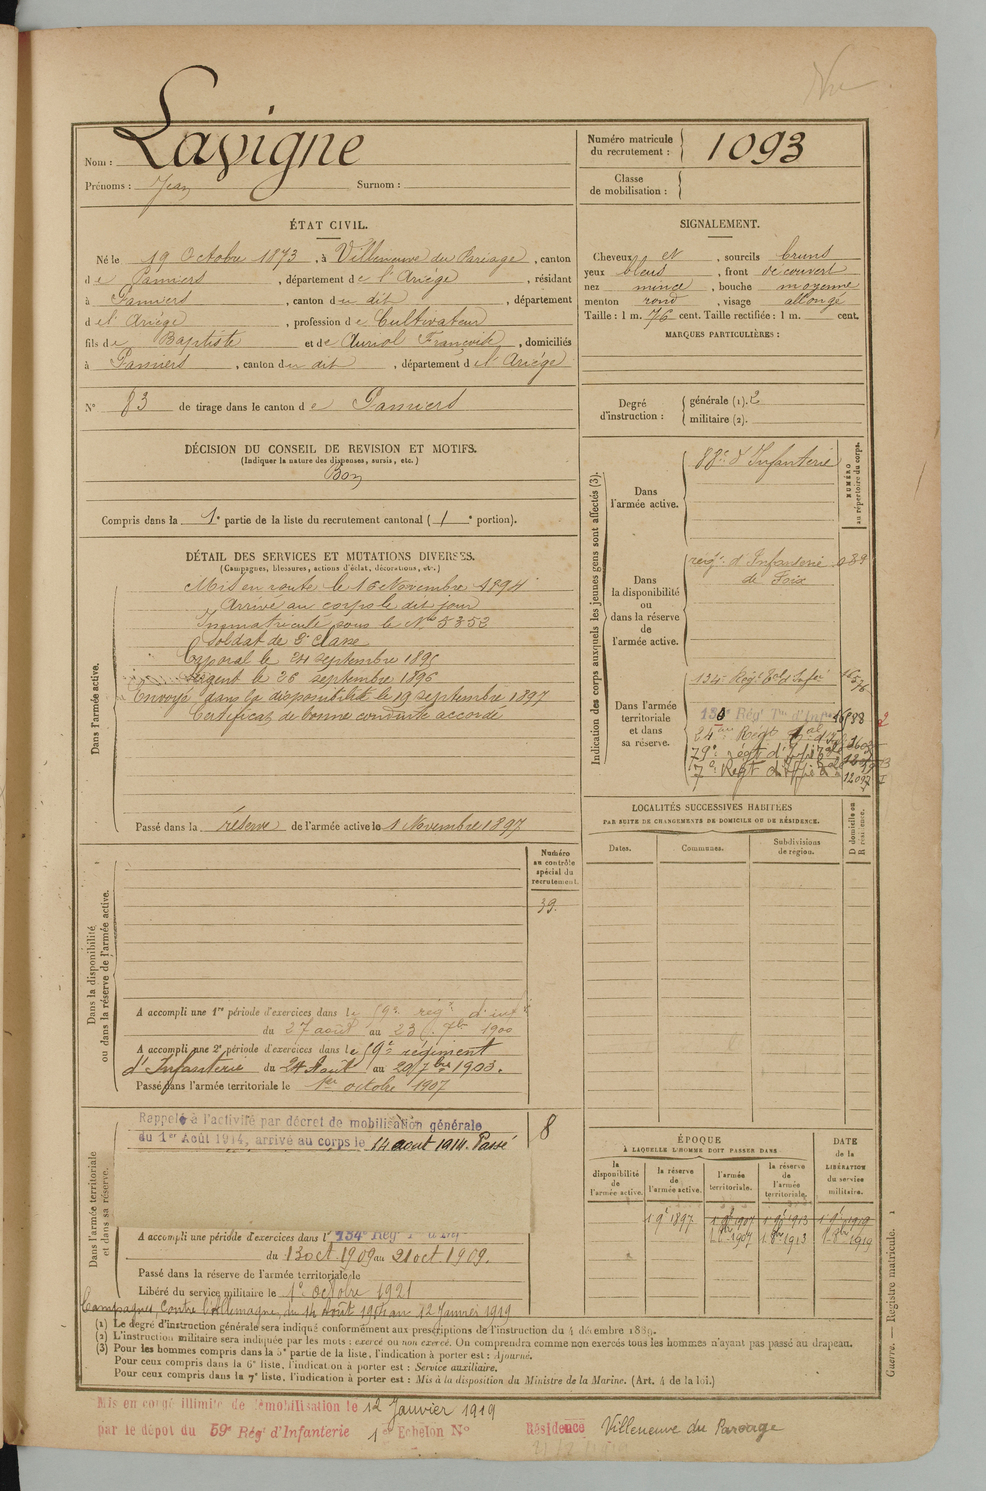 Nom : Lavigne
Prénoms : Jean Surnom :
Numéro matricule du recrutement : 1093
Classe de mobilisation :
ÉTAT CIVIL.
Né le 19 Octobre 1873, à Villeneuve du Pariage, canton
de Pamiers, département de l'Ariège, résidant
à Pamiers, canton du dit, département
de l'Ariège, profession de Cultivateur
fils de Baptiste et de Auriol Françoise, domiciliés
à Pamiers, canton du dit, département de l'Ariège
N° 83 de tirage dans le canton de Pamiers
SIGNALEMENT.
Cheveux et, sourcils bruns
yeux bleus, front découvert
nez mince, bouche moyenne
menton rond, visage allongé
Taille : 1 m. 76 cent. Taille rectifiée : 1 m. cent.
MARQUES PARTICULIÈRES :
Degré d'instruction :
générale (1). 2
militaire (2).
DÉCISION DU CONSEIL DE REVISION ET MOTIFS.
(Indiquer la nature des dispenses, sursis, etc.)
Bon
Compris dans la 1e partie de la liste du recrutement cantonal (1e portion).
DÉTAIL DES SERVICES ET MUTATIONS DIVERSES.
(Campagnes, blessures, actions d'éclat, décorations, etc.)
Dans l'armée active.
Mis en route le 16 Novembre 1894
Arrivé au corps le dit jour
Immatriculé sous le No 5353
Soldat de 2e classe
Caporal le 24 septembre 1895
Sergent le 26 septembre 1896
Envoyé dans la disponibilité le 19 septembre 1897
Certificat de bonne conduite accordé
Passé dans la réserve de l'armée active le 1 Novembre 1897
Indication des corps auxquels les jeunes gens sont affectés (3).
NUMÉRO au répertoire du corps.
Dans l'armée active.
88e d'Infanterie
Dans la disponibilité ou dans la réserve de l'armée active.
regt. d'Infanterie 039
de Foix
Dans l'armée territoriale et dans sa réserve.
134e Regt
Régt Tal d'Infie
LOCALITÉS SUCCESSIVES HABITÉES
PAR SUITE DE CHANGEMENTS DE DOMICILE OU DE RÉSIDENCE.
Dates. Communes. Subdivisions de région. D domicile ou R résidence.
Dans la disponibilité ou dans la réserve de l'armée active.
Numéro au contrôle spécial du recrutement.
39.
A accompli une 1re période d'exercices dans le 59e régt d'inf
du 27 août au 23 7bre 1900
A accompli une 2e période d'exercices dans le 59e régiment
d'Infanterie du 24 Aout au 20 7bre 1903.
Passé dans l'armée territoriale le 1er octobre 1907
Dans l'armée territoriale et dans sa réserve.
Rappelé à l'activité par décret de mobilisation générale
du 1er Août 1914, arrivé au corps le 14 aout 1914. Passé
8
A accompli une période d'exercices dans l' 134e Rég
du 13 oct 1909 au 21 oct 1909.
Passé dans la réserve de l'armée territoriale le
Libéré du service militaire le 1er octobre 1921
Campagnes, Contre l'Allemagne, du 14 Août 1914 au 12 Janvier 1919
ÉPOQUE
À LAQUELLE L'HOMME DOIT PASSER DANS
la disponibilité de l'armée active. la réserve de l'armée active. l'armée territoriale. la réserve de l'armée territoriale.
DATE de la LIBÉRATION du service militaire.
1 9e 1897 1 9e 1907 1 9e 1913 1 9e 1919
1 8bre 1907 1 8bre 1913 1 8bre 1919
(1) Le degré d'instruction générale sera indiqué conformément aux prescriptions de l'instruction du 4 décembre 1889.
(2) L'instruction militaire sera indiquée par les mots : exercé ou non exercé. On comprendra comme non exercés tous les hommes n'ayant pas passé au drapeau.
(3) Pour les hommes compris dans la 5e partie de la liste, l'indication à porter est : Ajourné.
Pour ceux compris dans la 6e liste, l'indication à porter est : Service auxiliaire.
Pour ceux compris dans la 7e liste, l'indication à porter est : Mis à la disposition du Ministre de la Marine. (Art. 4 de la loi.)
Guerre. — Registre matricule. 1
Mis en congé illimité de démobilisation le 12 Janvier 1919
par le dépôt du 59e Régt d'Infanterie 1er Echelon N° Résidence Villeneuve du Pareage